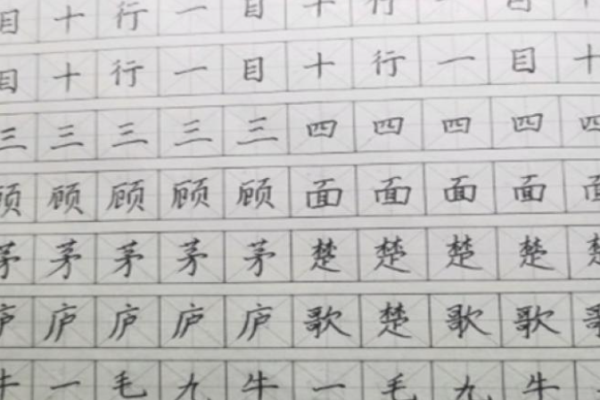 目十行一目十行一目十
目十行一目十行一目十
三三三三三四四四四四
顾顾顾顾顾面面面面面
茅茅茅茅茅楚楚楚楚楚
庐庐庐庐庐歌楚歌歌歌
牛一毛九牛一毛九牛一